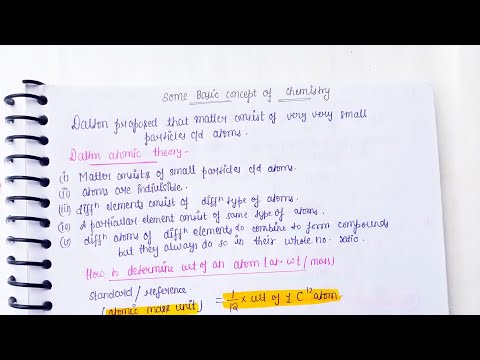 Some Basic concept of chemistry
Dalton proposed that matter consist of very very small
particles c/d atoms.
Dalton atomic theory-
(i) Matter consists of small particles c/d atoms.
(ii) atoms are indivisible.
(iii) diffn elements consist of diffn type of atoms.
(iv) A particular element consist of same type of atoms.
(v) diffn atoms of diffn elements do combine to form compounds
but they always do so in their whole no. ratio.
How to determine wt of an atom (at. wt/mass)
standard/reference.
(atomic mass unit) = 1/12 × wt of 1 C12 atom